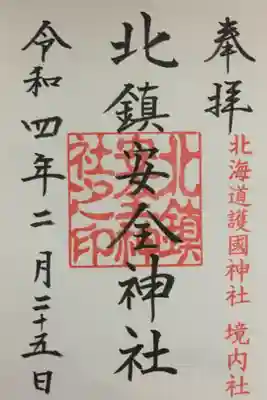 奉拝
北海道護國神社 境内社
北鎮安全神社
北鎮安全神社之印
令和四年二月二十五日